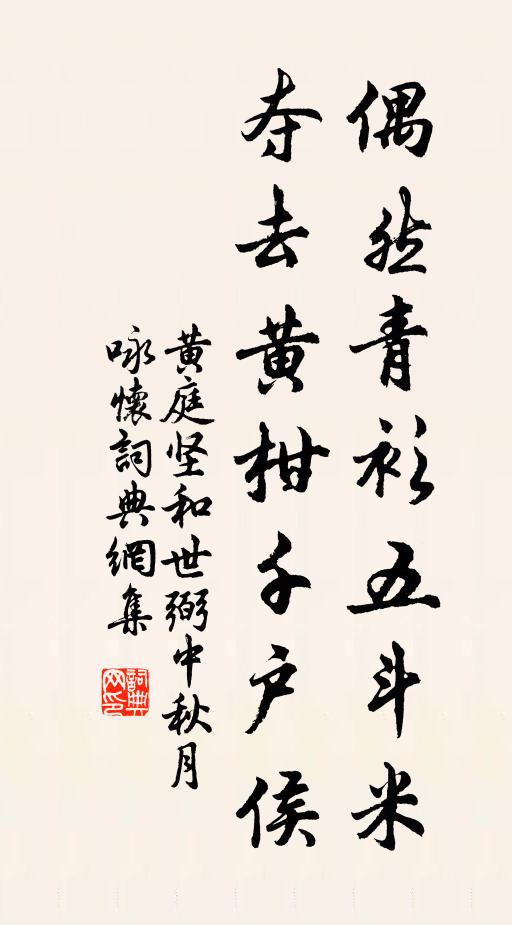 偶然青衫五斗米
夺去黄柑千户侯
黄庭坚和世弼中秋月
咏懷詞典網集
詞典网印